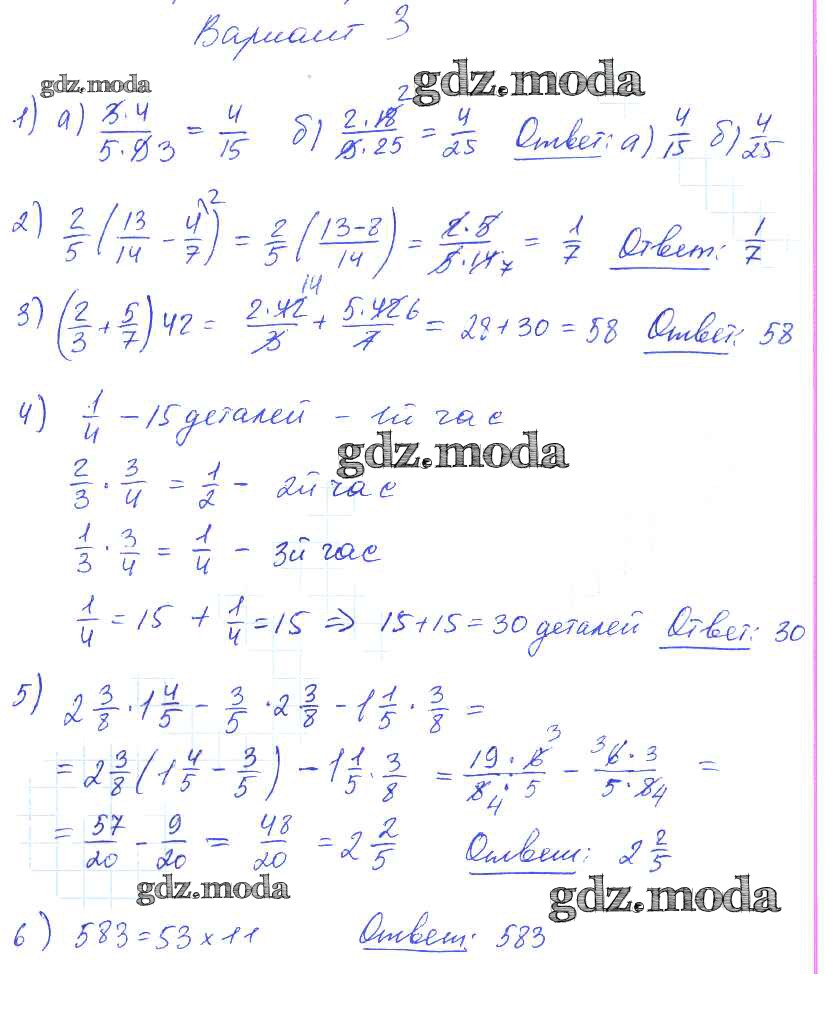 Вариант 3
gdz.moda
gdz.moda
1) а) 3·4/5·9 3 = 4/15 б) 2·18 2/9·25 = 4/25 Ответ: а) 4/15 б) 4/25
2) 2/5 (13/14 - 4/7\2) = 2/5 (13-8/14) = 2·5/5·14 7 = 1/7 Ответ: 1/7
3) (2/3 + 5/7) 42 = 2·42 14/3 + 5·42 6/7 = 28 + 30 = 58 Ответ: 58
4) 1/4 - 15 деталей - 1й час
gdz.moda
2/3 · 3/4 = 1/2 - 2й час
1/3 · 3/4 = 1/4 - 3й час
1/4 = 15 + 1/4 = 15 => 15+15 = 30 деталей Ответ: 30
5) 2 3/8 · 1 4/5 - 3/5 · 2 3/8 - 1 1/5 · 3/8 =
= 2 3/8 (1 4/5 - 3/5) - 1 1/5 · 3/8 = 19·6 3/8 4·5 - 3 6·3/5·8 4 =
= 57/20 - 9/20 = 48/20 = 2 2/5 Ответ: 2 2/5
gdz.moda
gdz.moda
6) 583 = 53 x 11 Ответ: 583